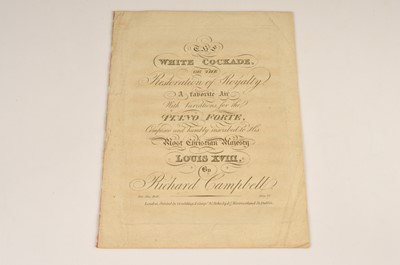 THE
WHITE COCKADE,
OR THE
Restoration of Royalty
A favorite Air
With Variations for the
PIANO FORTE,
Composed and humbly inscribed to His
Most Christian Majesty
LOUIS XVIII,
By
Richard Campbell